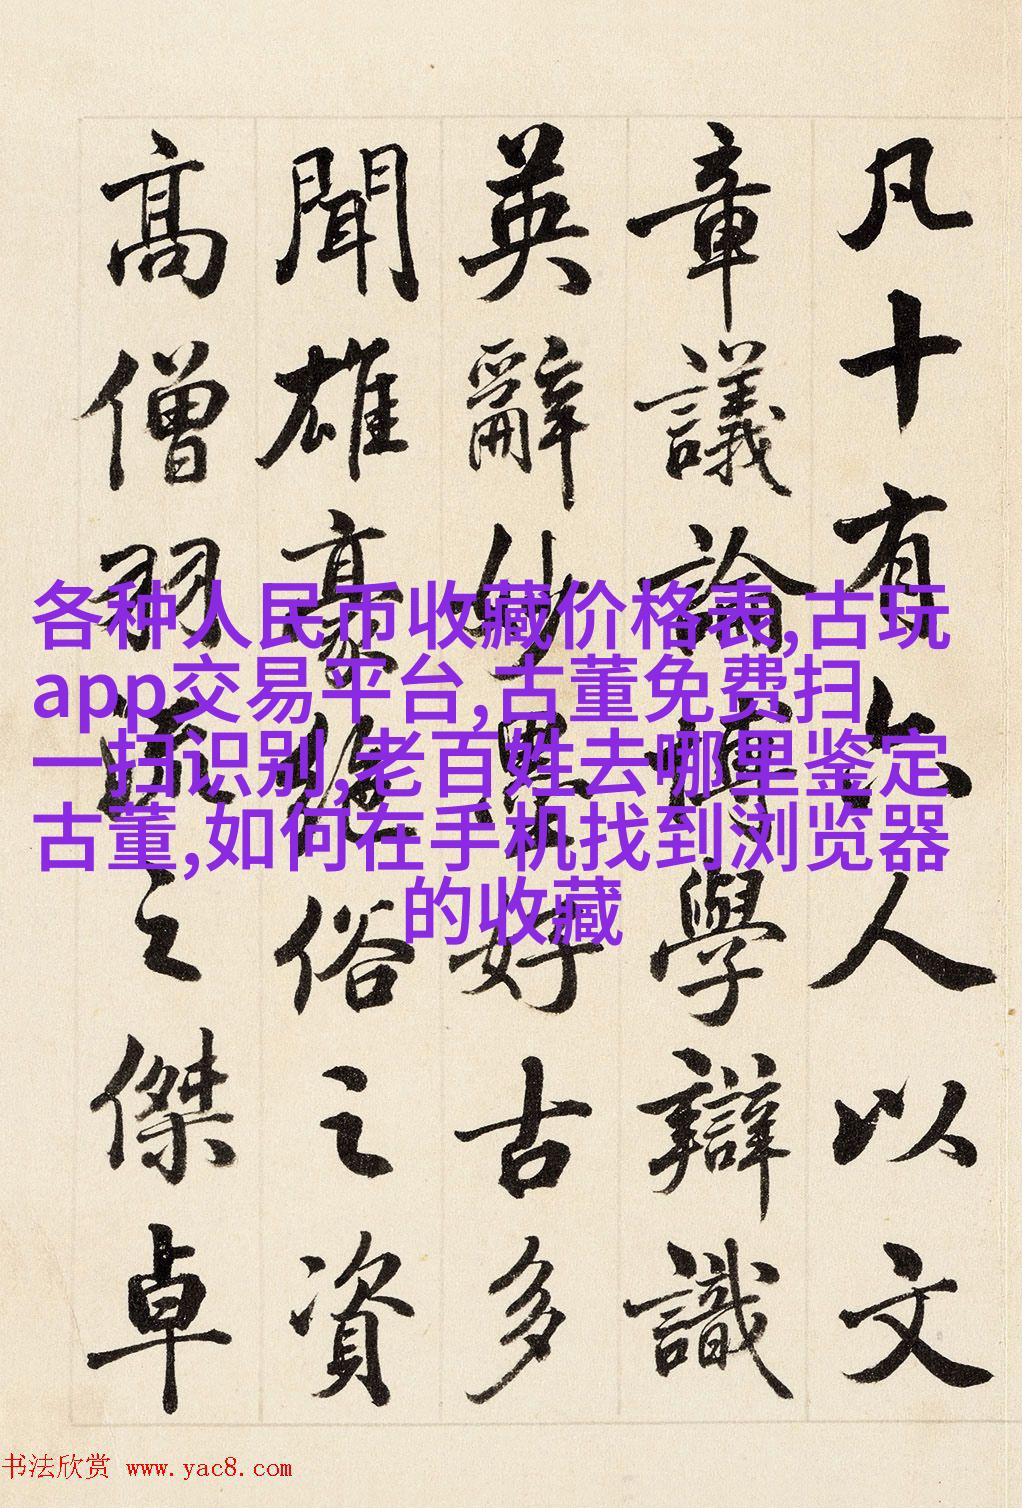 凡十有六人以文
章議論博學辯識
英辭妙墨好古多
聞雄豪絕俗之資
高僧羽流之傑卓
各种人民币收藏价格表,古玩
app交易平台,古董免费扫
一扫识别,老百姓去哪里鉴定
古董,如何在手机找到浏览器
的收藏
书法欣赏 www.yac8.com